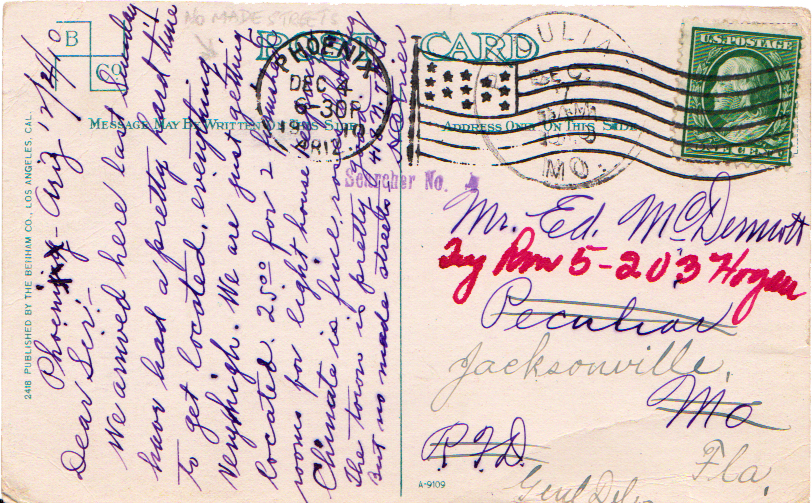 NO MADE STREETS
B
Co
POST CARD
MESSAGE MAY BE WRITTEN ON THIS SIDE
ADDRESS ONLY ON THIS SIDE
2418 PUBLISHED BY THE BENHAM CO., LOS ANGELES, CAL.
A-9109
PHOENIX
DEC 4
6-30P
1910
ARIZ.
DEC
MO.
U.S. POSTAGE
Searcher No.
Phoenix - Ariz 12/2/10
Dear Sir:-
We arrived here last Sunday
have had a pretty hard time
to get located. everything
very high. We are just getting
located. 25.00 for 2 furnished
rooms for light house
Climate is fine
The town is pretty
But no made streets
Mr. Ed. McDermott
Try Rm 5-203 Hogan
Peculiar
Jacksonville,
Mo
R.F.D.
Fla,
Genl Del.